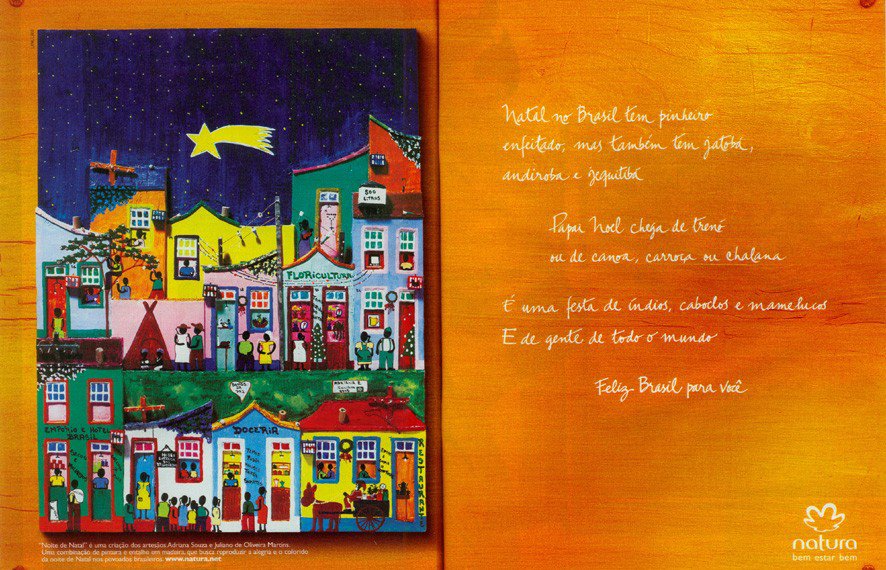 500
LITROS
FLORICULTURA
EMPÓRIO E HOTEL
BRASIL
DOCERIA
RESTAURANTE
"Noite de Natal" é uma criação dos artesãos Adriana Souza e Juliano de Oliveira Martins.
Uma combinação de pintura e entalho em madeira, que busca reproduzir a alegria e o colorido
da noite de Natal nos povoados brasileiros. www.natura.net
Natal no Brasil tem pinheiro
enfeitado, mas também tem jatobá,
andiroba e jequitibá
Papai Noel chega de trenó
ou de canoa, carroça ou chalana
É uma festa de índios, caboclos e mamelucos
E de gente de todo o mundo
Feliz Brasil para você
natura
bem estar bem